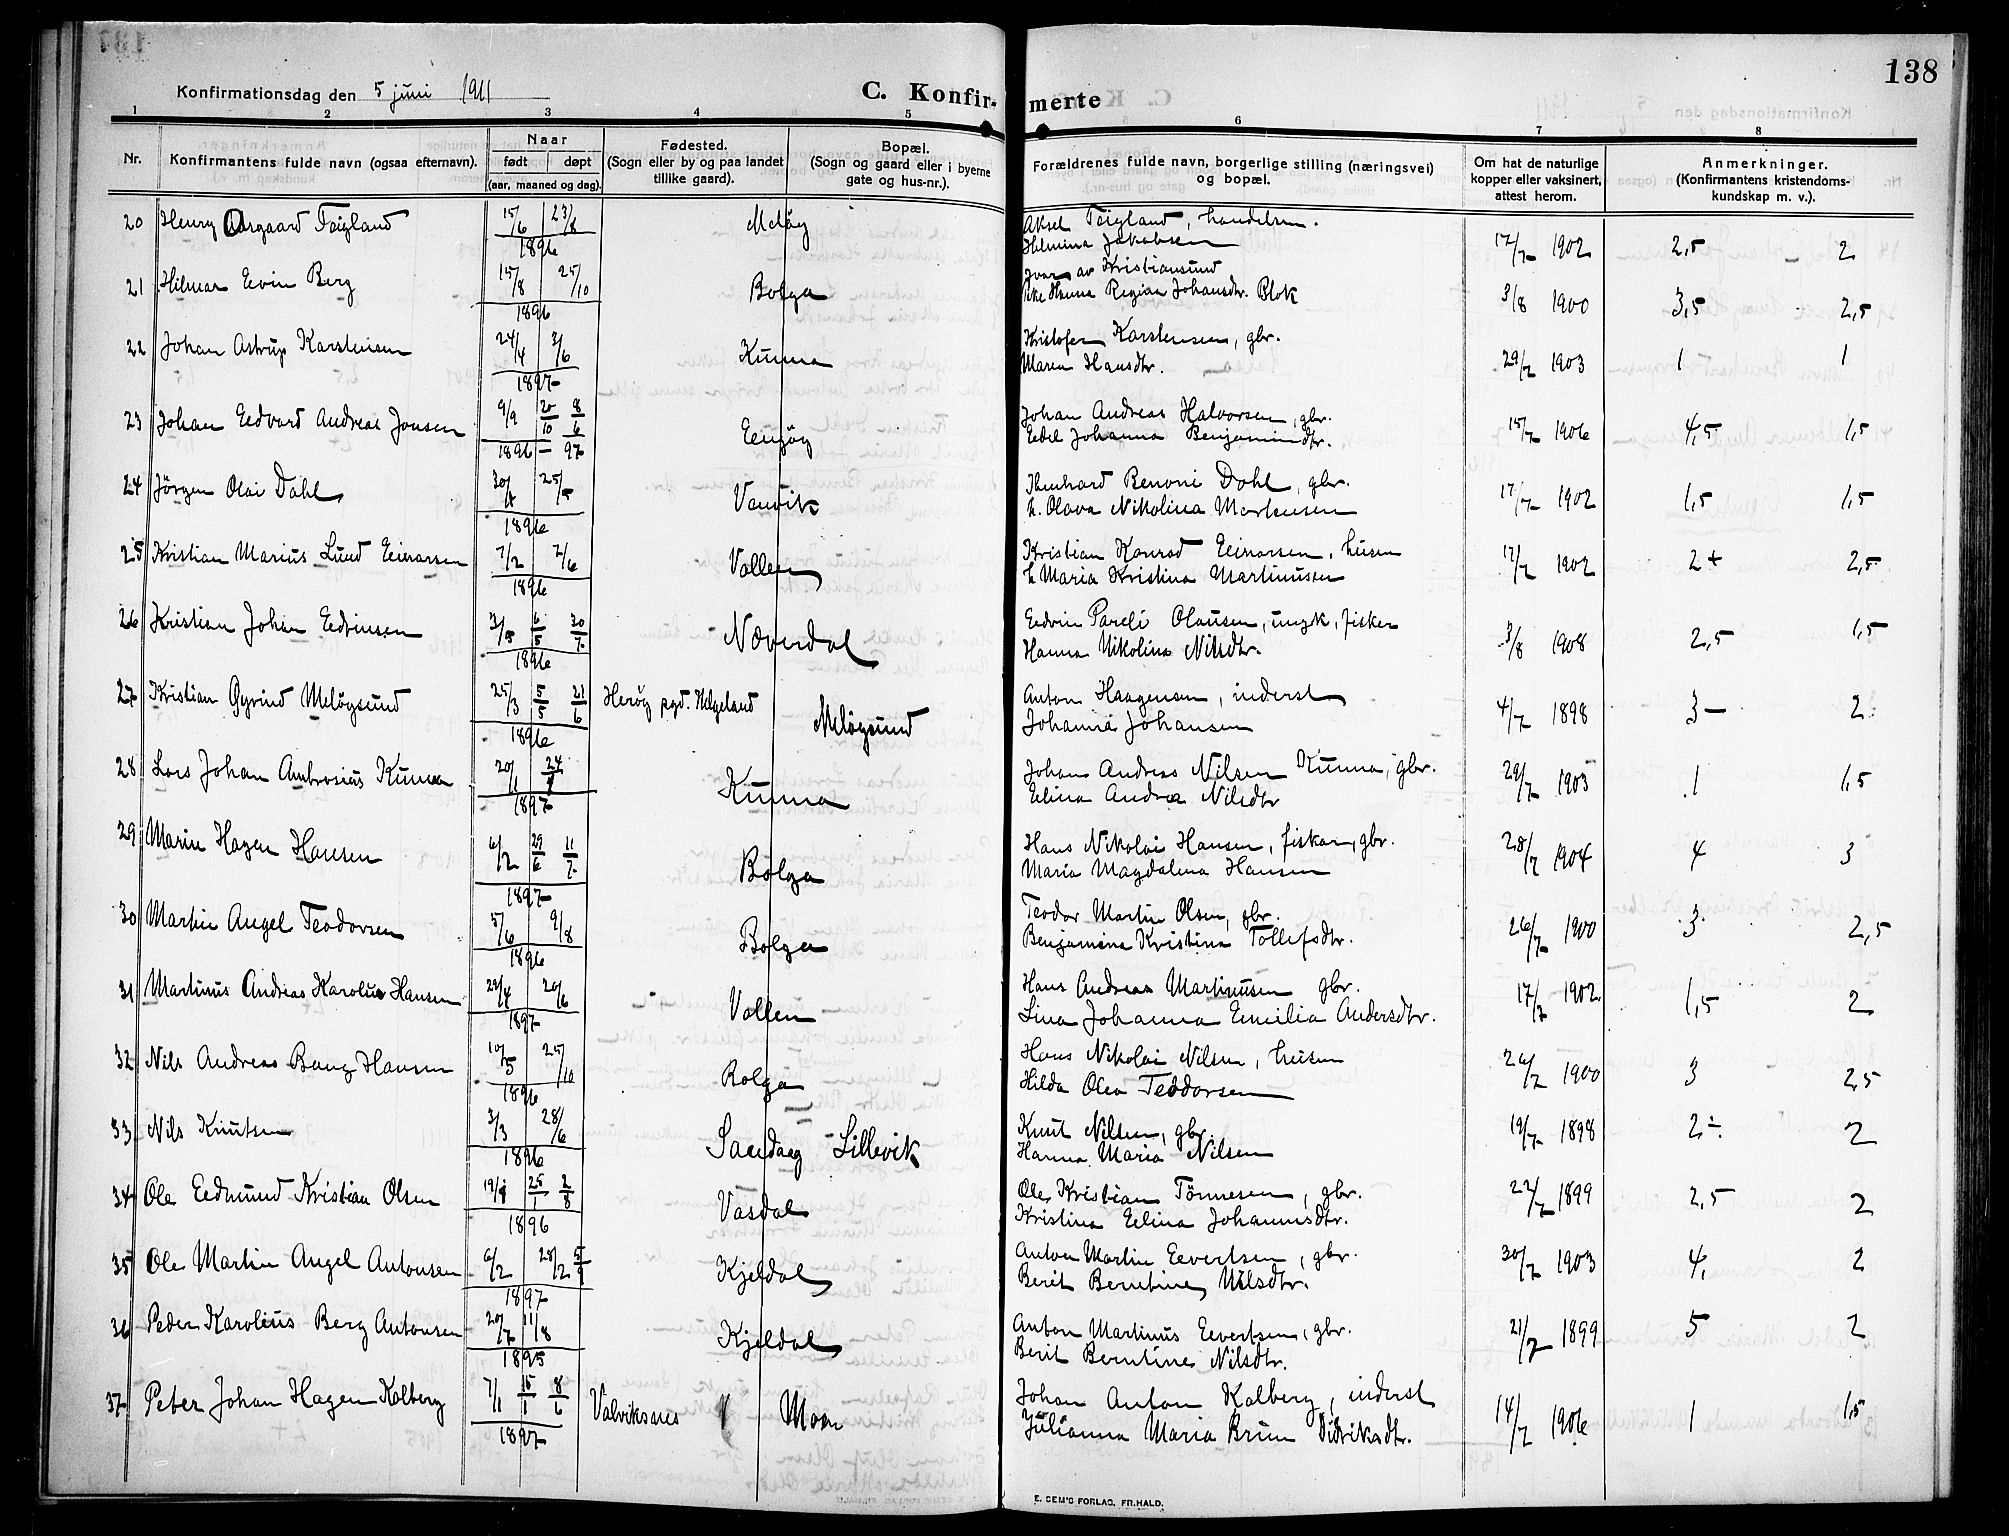 138
Konfirmationsdag den 5 juni 1911
C. Konfir- merte
1 2 3 4 5 6 7 8
Nr. Konfirmantens fulde navn (ogsaa efternavn). Naar født døpt (aar, maaned og dag). Fødested. (Sogn eller by og paa landet tillike gaard). Bopæl. (Sogn og gaard eller i byerne gate og hus-nr.). Forældrenes fulde navn, borgerlige stilling (næringsvei) og bopæl. Om hat de naturlige kopper eller vaksinert, attest herom. Anmerkninger. (Konfirmantens kristendoms- kundskap m. v.).
20 Henry Aargaard Foigland 15/6 23/8 1896 Meløy Aksel Foigland, handelsm. 17/7 1902 2,5 2
Helmina Jakobsen
21 Hilmar Evin Berg 15/8 25/10 1896 Bolga Ivar av Kristiansund 3/8 1900 3,5 2,5
Pike Hanna Regina Johansdtr. Blok
22 Johan Astrup Karstensen 24/4 3/6 1897 Kunna Kristofer Karstensen, gbr. 29/7 1903 1 1
Maren Hansdtr.
23 Johan Edvard Andreas Jonsen 9/9 20/10 8/6 1896 - 97 Eenøy Johan Andreas Halvorsen, gbr. 15/7 1906 4,5 1,5
Edel Johanna Benjamindtr.
24 Jörgen Olai Dahl 1896 Vanvik Benoni Dahl, gbr. 17/7 1902 1,5 1,5
h. Olava Nikolina Mortensen
25 Kristian Marius Lund Einarsen 7/2 7/6 1896 Vallen Kristian Konrad Einarsen, husm 17/7 1902 2+ 2,5
h Maria Kristina Martinusen
26 Kristian Johan Edvinsen 3/5 6/5 30/7 1896 Næverdal Edvin Pareli Olausen, ungk, fisker 3/8 1908 2,5 1,5
Hanna Nikolina Nilsdtr.
27 Kristian Øyvind Meløysund 25/3 5/5 21/6 1896 Herøy pgd. Helgeland Meløysund Anton Haagensen, inderst 4/7 1898 3- 2
Johanna Johansen
28 Lars Johan Ambrosius Kunna 20/1 24/4 1897 Kunna Johan Andreas Nilsen Kunna, gbr. 29/7 1903 1 1,5
Elina Andrea Nilsdtr
29 Marin Hagen Hansen 6/2 29/6 11/7 1897 Bolga Hans Nikolai Hansen, fisker, gbr. 28/7 1904 4 3
Maria Magdalena Hansen
30 Martin Angel Teodorsen 5/6 9/8 1896 Bolga Teodor Martin Olsen, gbr. 26/7 1900 3 2,5
Benjamina Kristina Tollefsdtr.
31 Martinus Andreas Karolus Hansen 29/4 20/6 1897 Vallen Hans Andreas Martinusen gbr. 17/7 1902 1,5 2
Lina Johanna Emilia Andersdtr.
32 Nils Andreas Bang Hansen 10/5 25/10 1896 Bolga Hans Nikolai Nilsen, husm 26/7 1900 3 2,5
Hilda Olea Teodorsen
33 Nils Knutsen 3/3 28/6 1896 Sandaag Lillevik Knut Nilsen, gbr. 19/7 1898 2÷ 2
Hanna Maria Nilsen
34 Ole Edmund Kristian Olsen 25/1 2/8 1896 Vasdal Ole Kristian Tönnesen, gbr. 22/7 1899 2,5 2
Kristina Elina Johannsdtr.
35 Ole Martin Angel Antonsen 6/2 28/2 5/9 1897 Kjeldal Anton Martin Evertsen, gbr. 30/7 1903 4, 2
Berit Berntine Nilsdtr.
36 Peder Karolius Berg Antonsen 20/7 11/8 1895 Kjeldal Anton Martinus Evertsen, gbr. 21/7 1899 5 2
Berit Berntine Nilsdtr.
37 Peter Johan Hagen Kolberg 7/1 15/1 8/6 1897 Valviksnes Moen Johan Anton Kolberg, inderst 14/7 1906 1 1,5
Julianna Maria Brun Didriksdtr.
E. SEM'S FORLAG, FR.HALD.